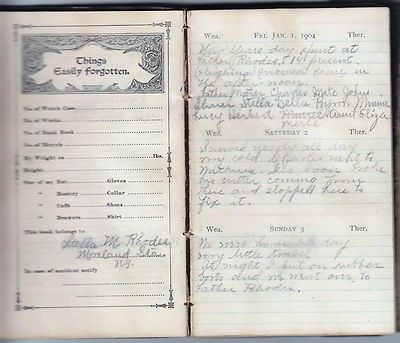 Things
Easily forgotten.
No. of Watch Case
No. of Works
No. of Bank Book
No. of Bicycle
My Weight on lbs.
Height
Size of my Hat Gloves
" Hosiery " Collar
" Cuffs " Shoes
" Drawers " Shirt
This book belongs to
Stella M Rhodes
Moreland
N.Y.
In case of accident notify
Wea. FRI. JAN. 1, 1904 Ther.
New Years day spent at
Father Rhodes. 14 present.
Sleighing snowed some in
the after noon.
Father Mother Charles Mate John
Elmer Stella Della Byron Minnie
Lucy Herbert Muriel Aunt Eliza
Merle
Wea. SATURDAY 2 Ther.
Snowed nearly all day
very cold Charles went to
Watkins. broke
his cutter coming from
there and stopped here to
fix it.
Wea. SUNDAY 3 Ther.
We were home all day
very little travel
at night I put on rubber
boots and we went over to
Father Rhodes.